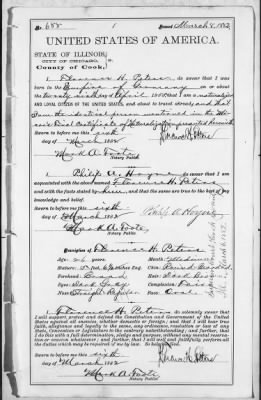 No. 688 1 Issued March 9, 1882
UNITED STATES OF AMERICA.
STATE OF ILLINOIS,
CITY OF CHICAGO,
County of Cook,
I, Florence H. Peters, do swear that I was
born in the Empire of Germany on or about
the twenty sixth day of April 1855; that I am a
AND LOYAL CITIZEN OF THE UNITED STATES, and about to travel abroad; and that
I am the identical person mentioned in the
Certificate of herewith
Sworn to before me this sixth
day of March 1882
Mark A. Foote
Notary Public
I, Philip A. Hoyne am
acquainted with the above named Florence H. Peters
and with the facts stated by and that the same are true to the best of my
knowledge and belief.
Sworn to before me this sixth
day of March 1882 Philip A. Hoyne
Mark A. Foote
Notary Public
Description of Florence H. Peters
Age: 26 years Mouth: Medium
Stature: Chin: Round
Forehead: Broad Hair: Dark
Eyes: Dark Grey Complexion: Fair
Nose: Straight Regular Face: Oval
I, Florence H. Peters do solemnly swear that I
will support, protect and defend the Constitution and Government of the United
States against all enemies, whether domestic or foreign; and that I will bear true
faith, allegiance and loyalty to the same, any ordinance, resolution or law of any
State, Convention or Legislature to the contrary notwithstanding; and further, that
I do this with a full determination, pledge and purpose, without any mental reser-
vation or evasion whatsoever; and I will well and faithfully perform all
the duties which may be required of me by law. So help me God.
Sworn to before me this sixth
day of March 1882
Mark A. Foote
Notary Public